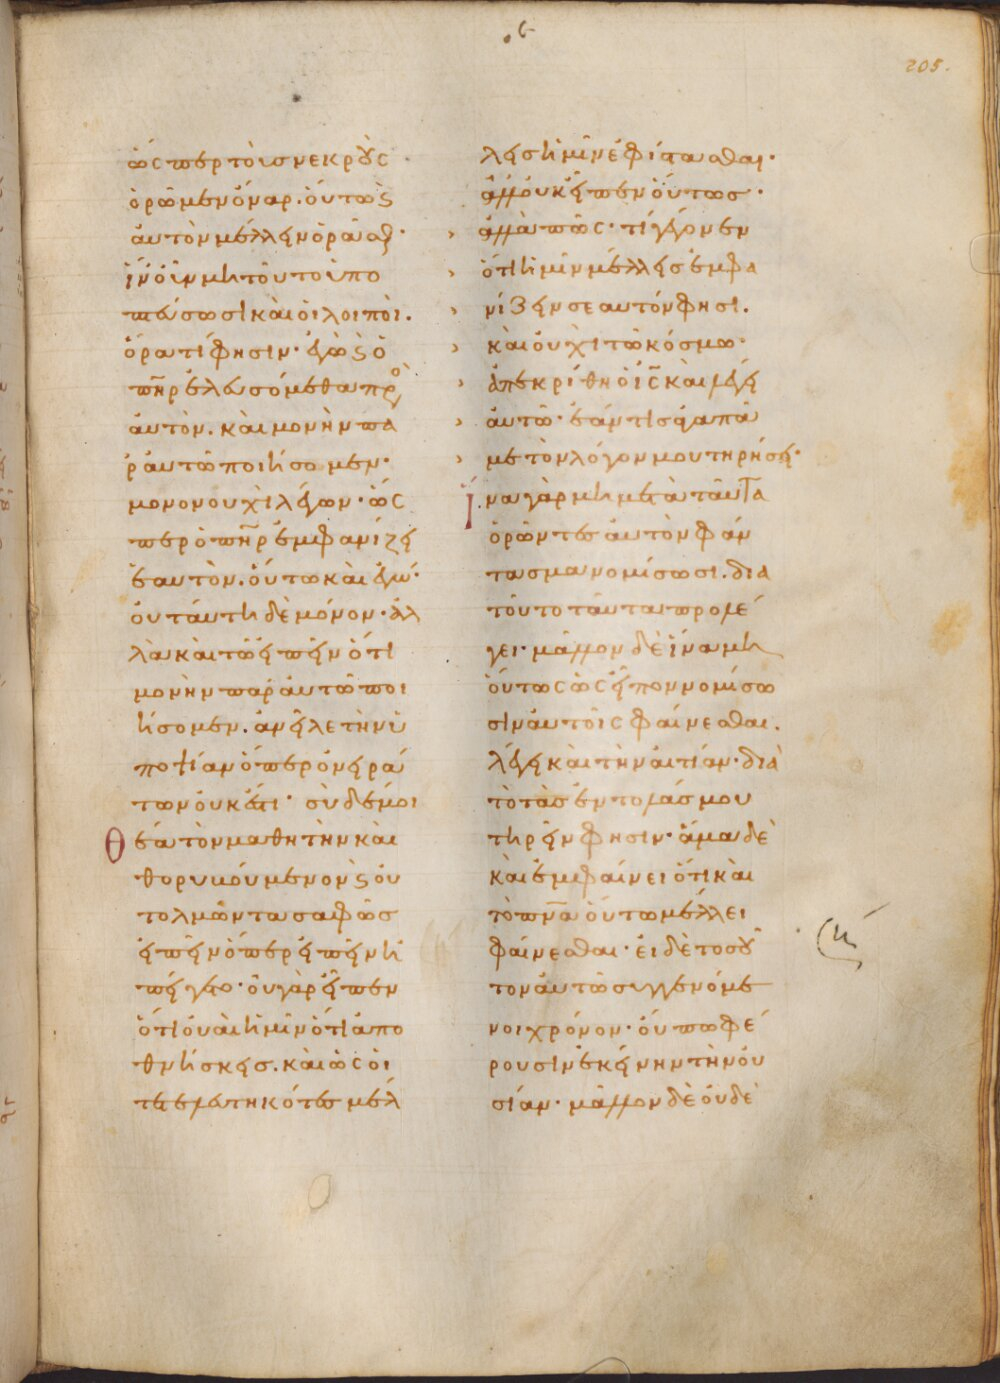 205.
ὡσπερ τοὺσ νεκροὺς
ὁρῶμεν ὄναρ. οὕτως
αὐτὸν μέλλειν ὁρᾶσθαι·
ἵν' οὖν μὴ τοῦτο ὑπο
πτεύσωσι καὶ οἱ λοιποί.
ὅρα τί φησιν· ἐγὼ καὶ ὁ
πῆρ ἐλευσόμεθα πρὸ
αὐτὸν. καὶ μονὴν πα
ρ' αὐτῶ ποιήσομεν·
μονονουχὶ λέγων· ὡς
περ ὁ πὴρ ἐμφανίζει
ἑαυτὸν. οὕτω καὶ ἐγώ·
οὐ ταύτη δὲ μόνον· ἀλ
λὰ καὶ τῶ εἰπεῖν ὅτι
μονὴν παρ' αὐτῶ ποι
ήσομεν. ἀνεῖλε τὴν ὑ
ποψίαν ὅπερ ὀνειρά
των οὐκ ἔτι· σὺ δέ μοι
θέα τὸν μαθητὴν καὶ
θορυβούμενον καὶ οὐ
τολμῶντα σαφῶσ
εἰπεῖν ὅπερ εἰπεῖν ἠ
πείγετο· οὐ γὰρ εἶπεν
ὅτι οὐαὶ ἡμῖν ὅτι ἀπο
θνήσκεισ. καὶ ὡς οἱ
τετελευτηκότεσ μέλ
λεισ ἡμῖν ἐφίστασθαι·
ἀλλ' οὐκ εἶπεν οὕτωσ·
ἀλλὰ πῶς· τί γέγονεν
ὅτι ἡμῖν μέλλεισ ἐμφα
νίζειν σεαυτόν φησι.
καὶ οὐχὶ τῶ κόσμω·
ἀπεκρίθη ὁ ις καὶ λέγει
αὐτῶ· ἐάν τισ ἀγαπᾶ
με τὸν λόγον μου τηρήσει·
ἵνα γὰρ μὴ μετὰ ταῦτα
ὁρῶντεσ αὐτὸν φάν
τασμα νομίσωσι. δια
τοῦτο ταῦτα προλέ
γει· μᾶλλον δὲ ἵνα μὴ
οὕτως ὡς εἶπον νομίσω
σιν αὐτοῖς φαίνεσθαι.
λέγει καὶ τὴν αἰτίαν· διὰ
τὸ τὰσ ἐντολάσ μου
τηρεῖν φησιν· ἅμα δὲ
καὶ ἐμφαίνει ὅτι καὶ
τὸ πνα οὕτω μέλλει
φαίνεσθαι· εἰ δὲ τοσοῦ
τον αὐτῶ συγγενόμε
νοι χρόνον· οὔπω φέ
ρουσιν ἐκείνην τὴν οὐ
σίαν· μᾶλλον δὲ οὐδὲ